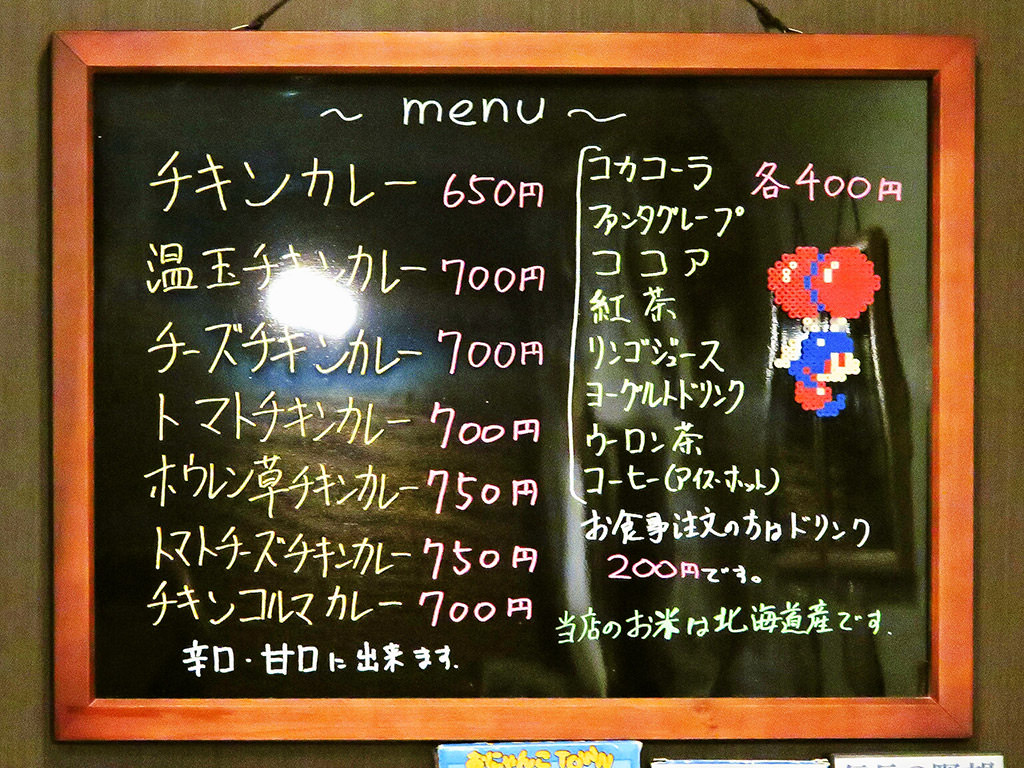 ～ menu ～
チキンカレー 650円
温玉チキンカレー 700円
チーズチキンカレー 700円
トマトチキンカレー 700円
ホウレン草チキンカレー 750円
トマトチーズチキンカレー 750円
チキンコルマカレー 700円
辛口・甘口に出来ます.
コカコーラ 各400円
ファンタグレープ
ココア
紅茶
リンゴジュース
ヨーグルトドリンク
ウーロン茶
コーヒー(アイス・ホット)
お食事注文の方はドリンク
200円です。
当店のお米は北海道産です.
おにゃんこTown